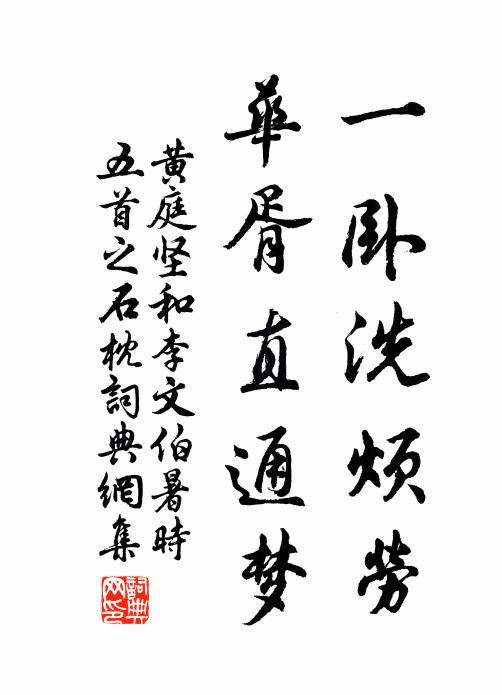 一卧洗煩勞
華胥直通梦
黄庭坚和李文伯暑時
五首之石枕詞典網集
詞典
网印